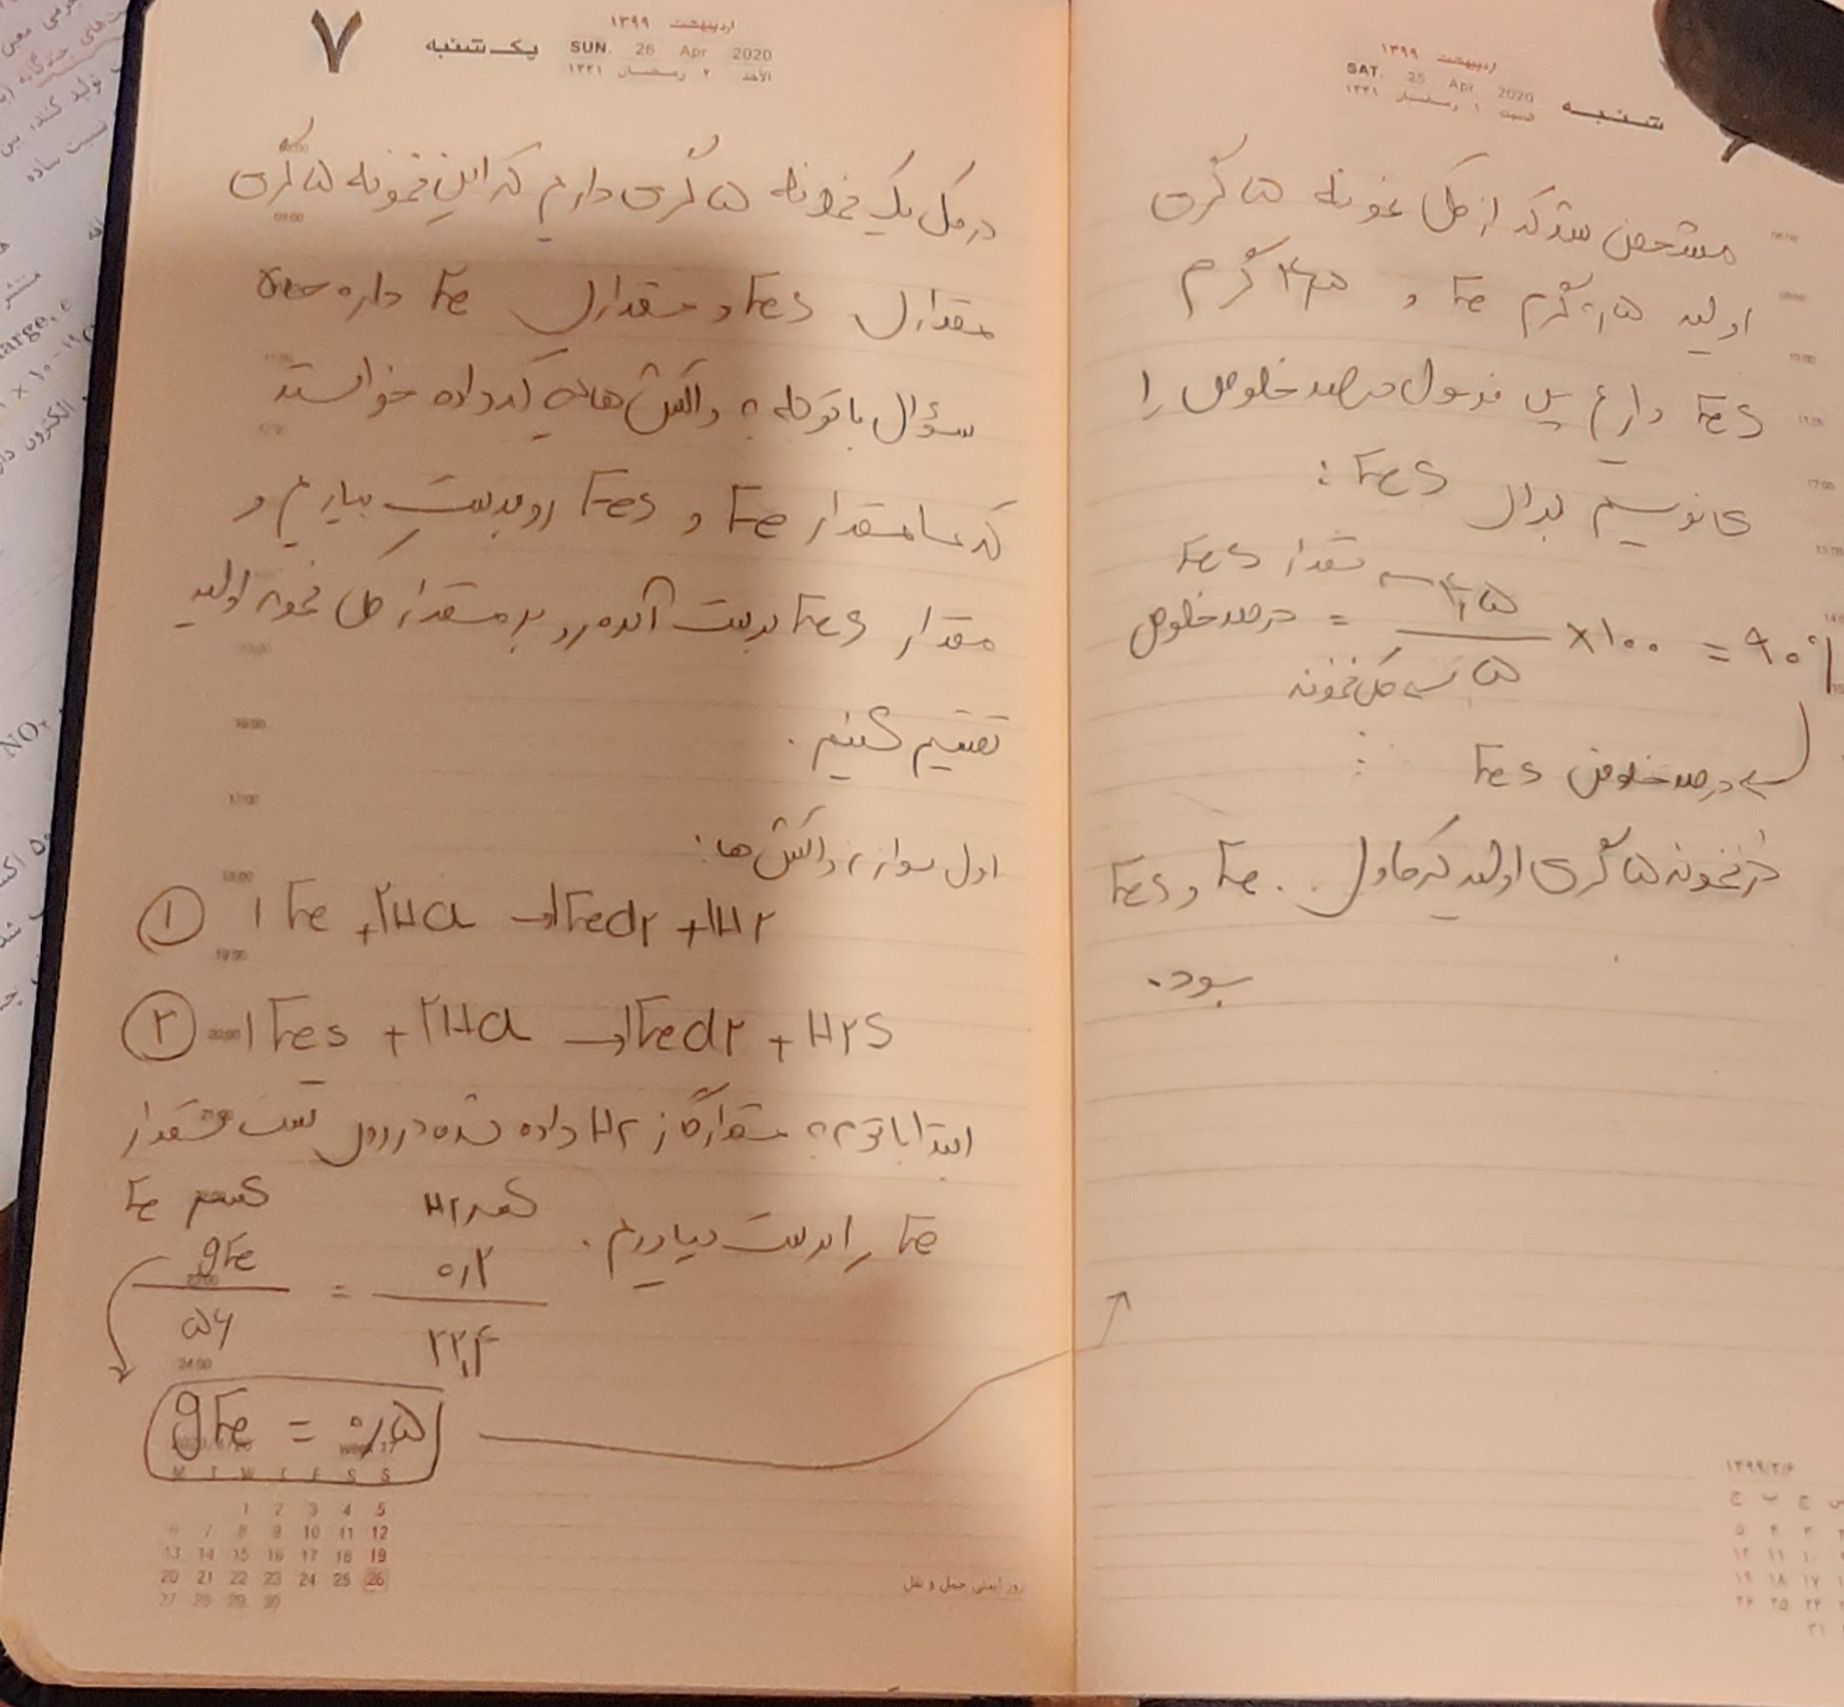 ۷
اردیبهشت ۱۳۹۹
یکشنبه SUN. 26 Apr 2020
الأحد ۲ رمضان ۱۴۴۱
در کل یک نمونه ۵ گرمی داریم که این نمونه ۵ گرمی
مقداری Fes و مقداری Fe داره
سؤال با توجه به واکنش هایی که داده خواسته
که ما مقدار Fe و Fes رو بدست بیاریم و
مقدار Fes بدست آمده رو بر مقدار کل نمونه اولیه
تقسیم کنیم.
اول موازنه واکنش ها:
① ۱Fe + ۲Hcl → ۱Fecl۲ + ۱H۲
② ۱Fes + ۲Hcl → ۱Fecl۲ + H۲s
ابتدا با توجه به مقدار گاز H۲ داده شده در روی تست مقدار
Fe را بدست میاوریم.
کسر Fe کسر H۲
gFe / ۵۶ = ۰٫۲ / ۲۲٫۴
gFe = ۰٫۵
2020/4/26 Week 17
M T W T F S S
1 2 3 4 5
6 7 8 9 10 11 12
13 14 15 16 17 18 19
20 21 22 23 24 25 26
27 28 29 30
روز ایمنی حمل و نقل
اردیبهشت ۱۳۹۹
شنبه SAT. 25 Apr 2020
السبت ۱ رمضان ۱۴۴۱
مشخص شد که از کل نمونه ۵ گرمی
اولیه ۰٫۵ گرم Fe و ۴٫۵ گرم
Fes داریم پس فرمول درصد خلوص را
می نویسیم برای Fes:
مقدار Fes
درصد خلوص = ۴٫۵ / ۵ × ۱۰۰ = ۹۰٪
کل نمونه
درصد خلوص Fes
در نمونه ۵ گرمی اولیه که حاوی Fe و Fes
بود.
۱۳۹۹/۲/۶